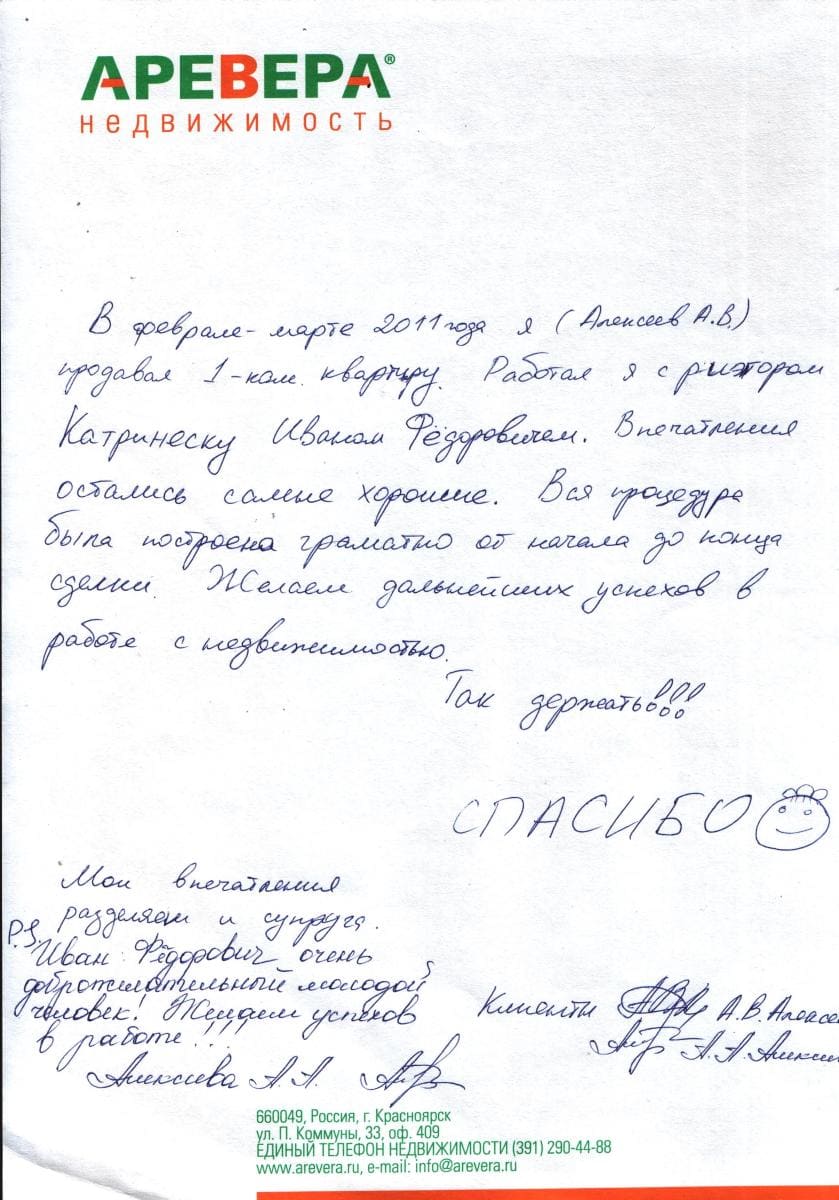 АРЕВЕРА®
недвижимость
В феврале-марте 2011 года я (Алексеев А.В.)
продавал 1-ком. квартиру. Работал я с риэтором
Катринеску Иваном Фёдоровичем. Впечатления
остались самые хорошие. Вся процедура
была построена граматно от начала до конца
сделки. Желаем дальнейших успехов в
работе с недвижимостью.
Так держать!!!
СПАСИБО
Мои впечатления
разделяет и супруга.
P.S.
Иван Фёдорович очень
доброжелательный молодой
человек! Желаем успехов
в работе!!!!
Алексеева А.А.
Клиенты А.В.Алексе
А.А.Алексе
660049, Россия, г. Красноярск
ул. П. Коммуны, 33, оф. 409
ЕДИНЫЙ ТЕЛЕФОН НЕДВИЖИМОСТИ (391) 290-44-88
www.arevera.ru, e-mail: info@arevera.ru